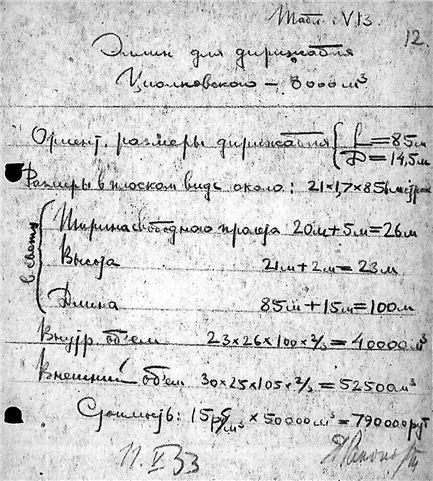 Табл. VI3.
12.
Эллинг для дирижабля
Циолковского – 8000 м³
Ориент. размеры дирижабля { L = 85м
D = 14,5м
Размеры в плоском виде около: 21×1,7×85 метров
в свету { Ширина свободного прохода 20м + 5м = 26м
Высота 21м + 2м = 23м
Длина 85м + 15м = 100м
Внутр. об'ем 23×26×100×⅔ = 40000м³
Внешний об'ем 30×25×105×⅔ = 52500м³
Стоимость: 15 руб/м³ × 50000м³ = 790000 руб
11.V33